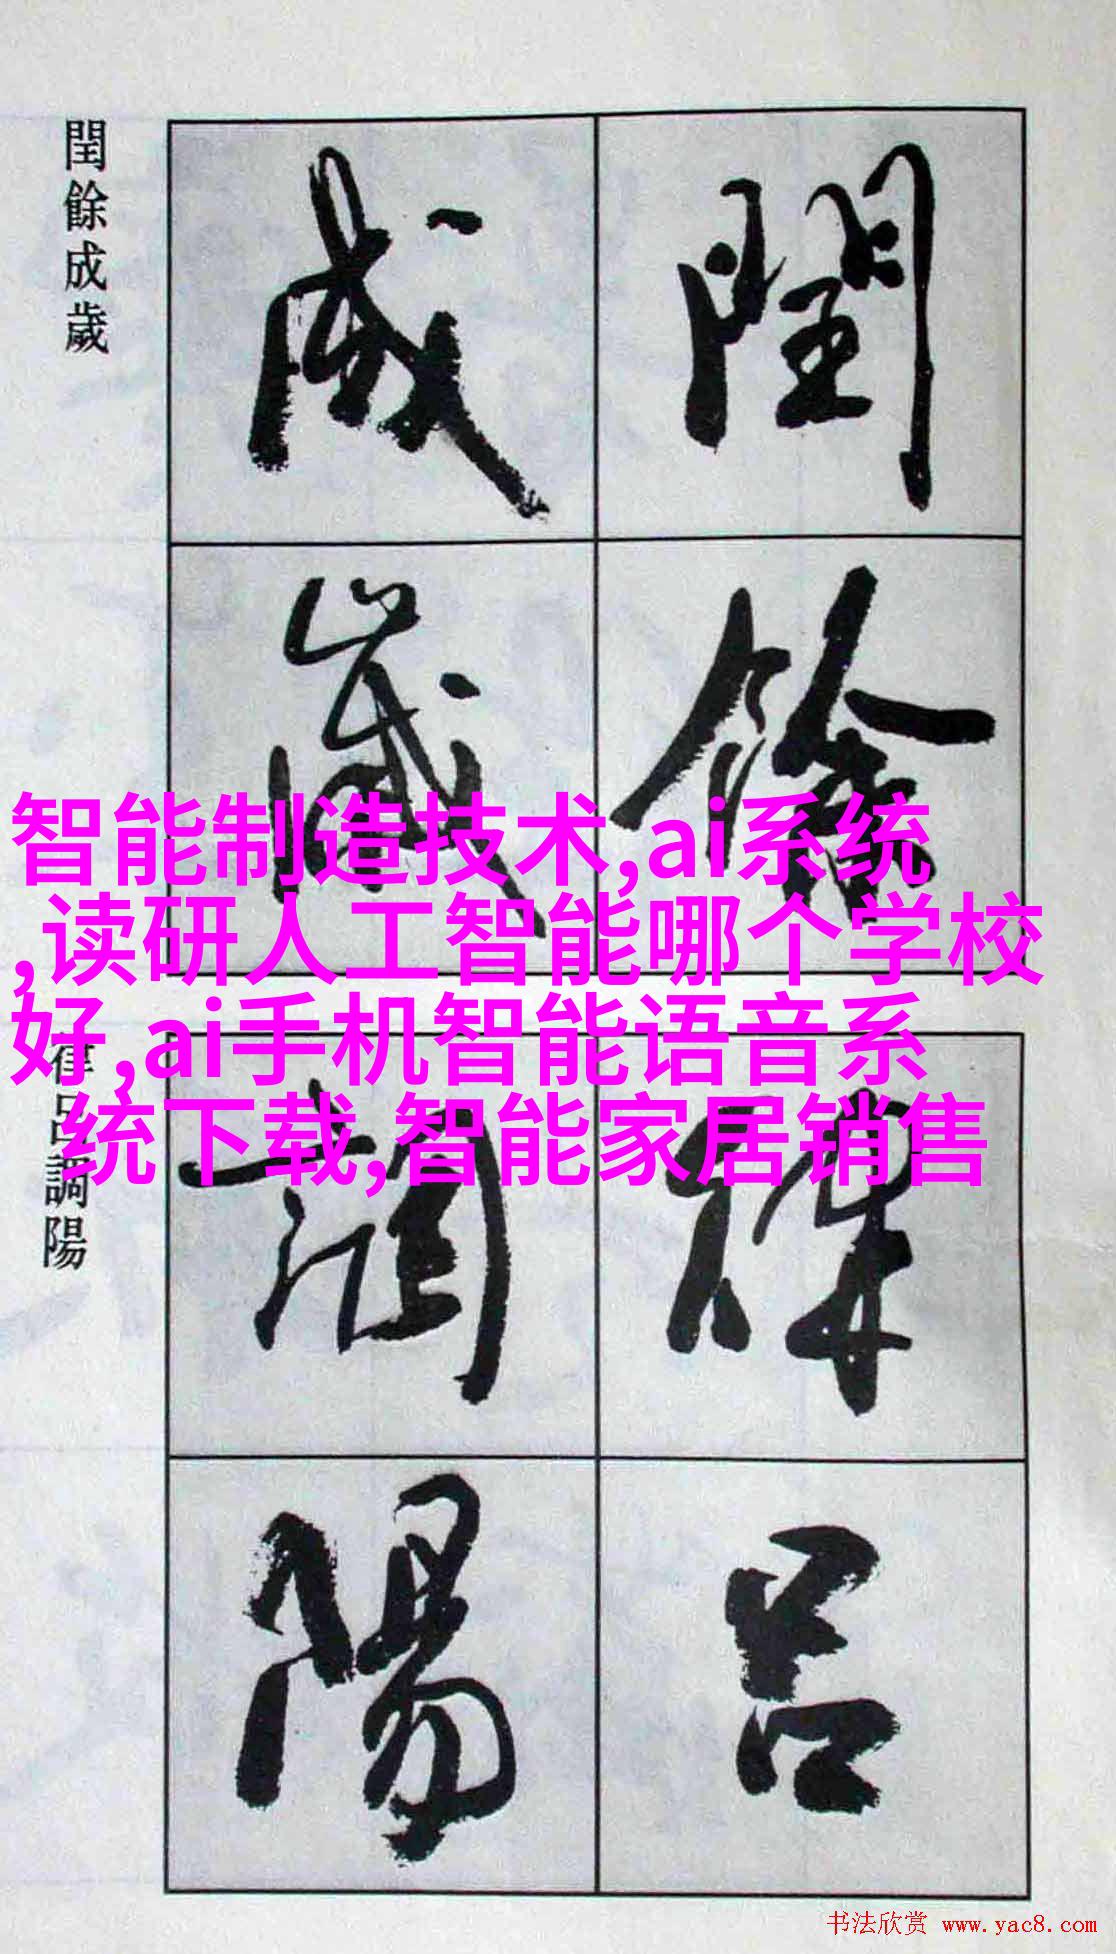 閏餘
成歲
閏餘成歲
智能制造技术,ai系统
,读研人工智能哪个学校
好,ai手机智能语音系
统下载,智能家居销售
律呂
調陽
律呂調陽
书法欣赏 www.yac8.com